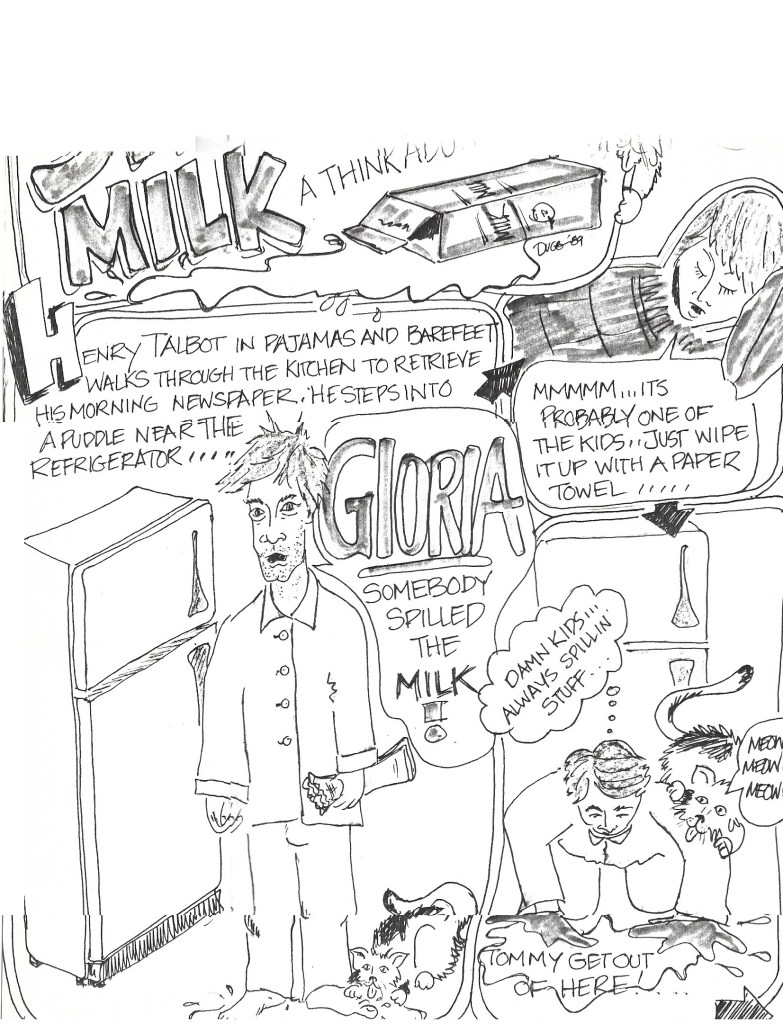 MILK
A THINK ADU
DUGG '89
HENRY TALBOT IN PAJAMAS AND BAREFEET
WALKS THROUGH THE KITCHEN TO RETRIEVE
HIS MORNING NEWSPAPER. HE STEPS INTO
A PUDDLE NEAR THE
REFRIGERATOR .....
MMMMM...ITS
PROBABLY ONE OF
THE KIDS...JUST WIPE
IT UP WITH A PAPER
TOWEL .....
GLORIA
SOMEBODY
SPILLED
THE
MILK
!
DAMN KIDS...
ALWAYS SPILLIN
STUFF...
MEOW
MEOW
MEOW
TOMMY GET OUT
OF HERE!....